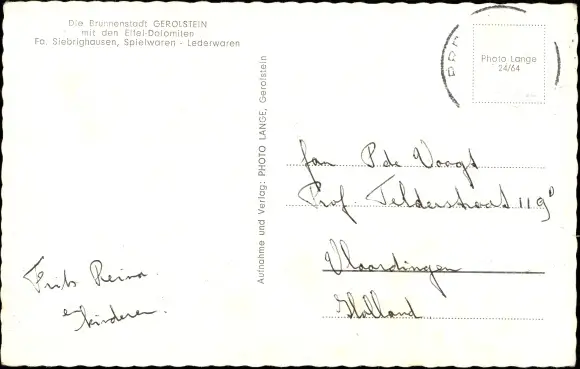 Die Brunnenstadt GEROLSTEIN
mit den Eifel-Dolomiten
Fa. Siebrighausen, Spielwaren - Lederwaren
Aufnahme und Verlag: PHOTO LANGE, Gerolstein
Photo Lange
24/64
fam P de Voogt
Prof. Telderstraat 119
Vlaardingen
Holland
Frits Reina
en kinderen.